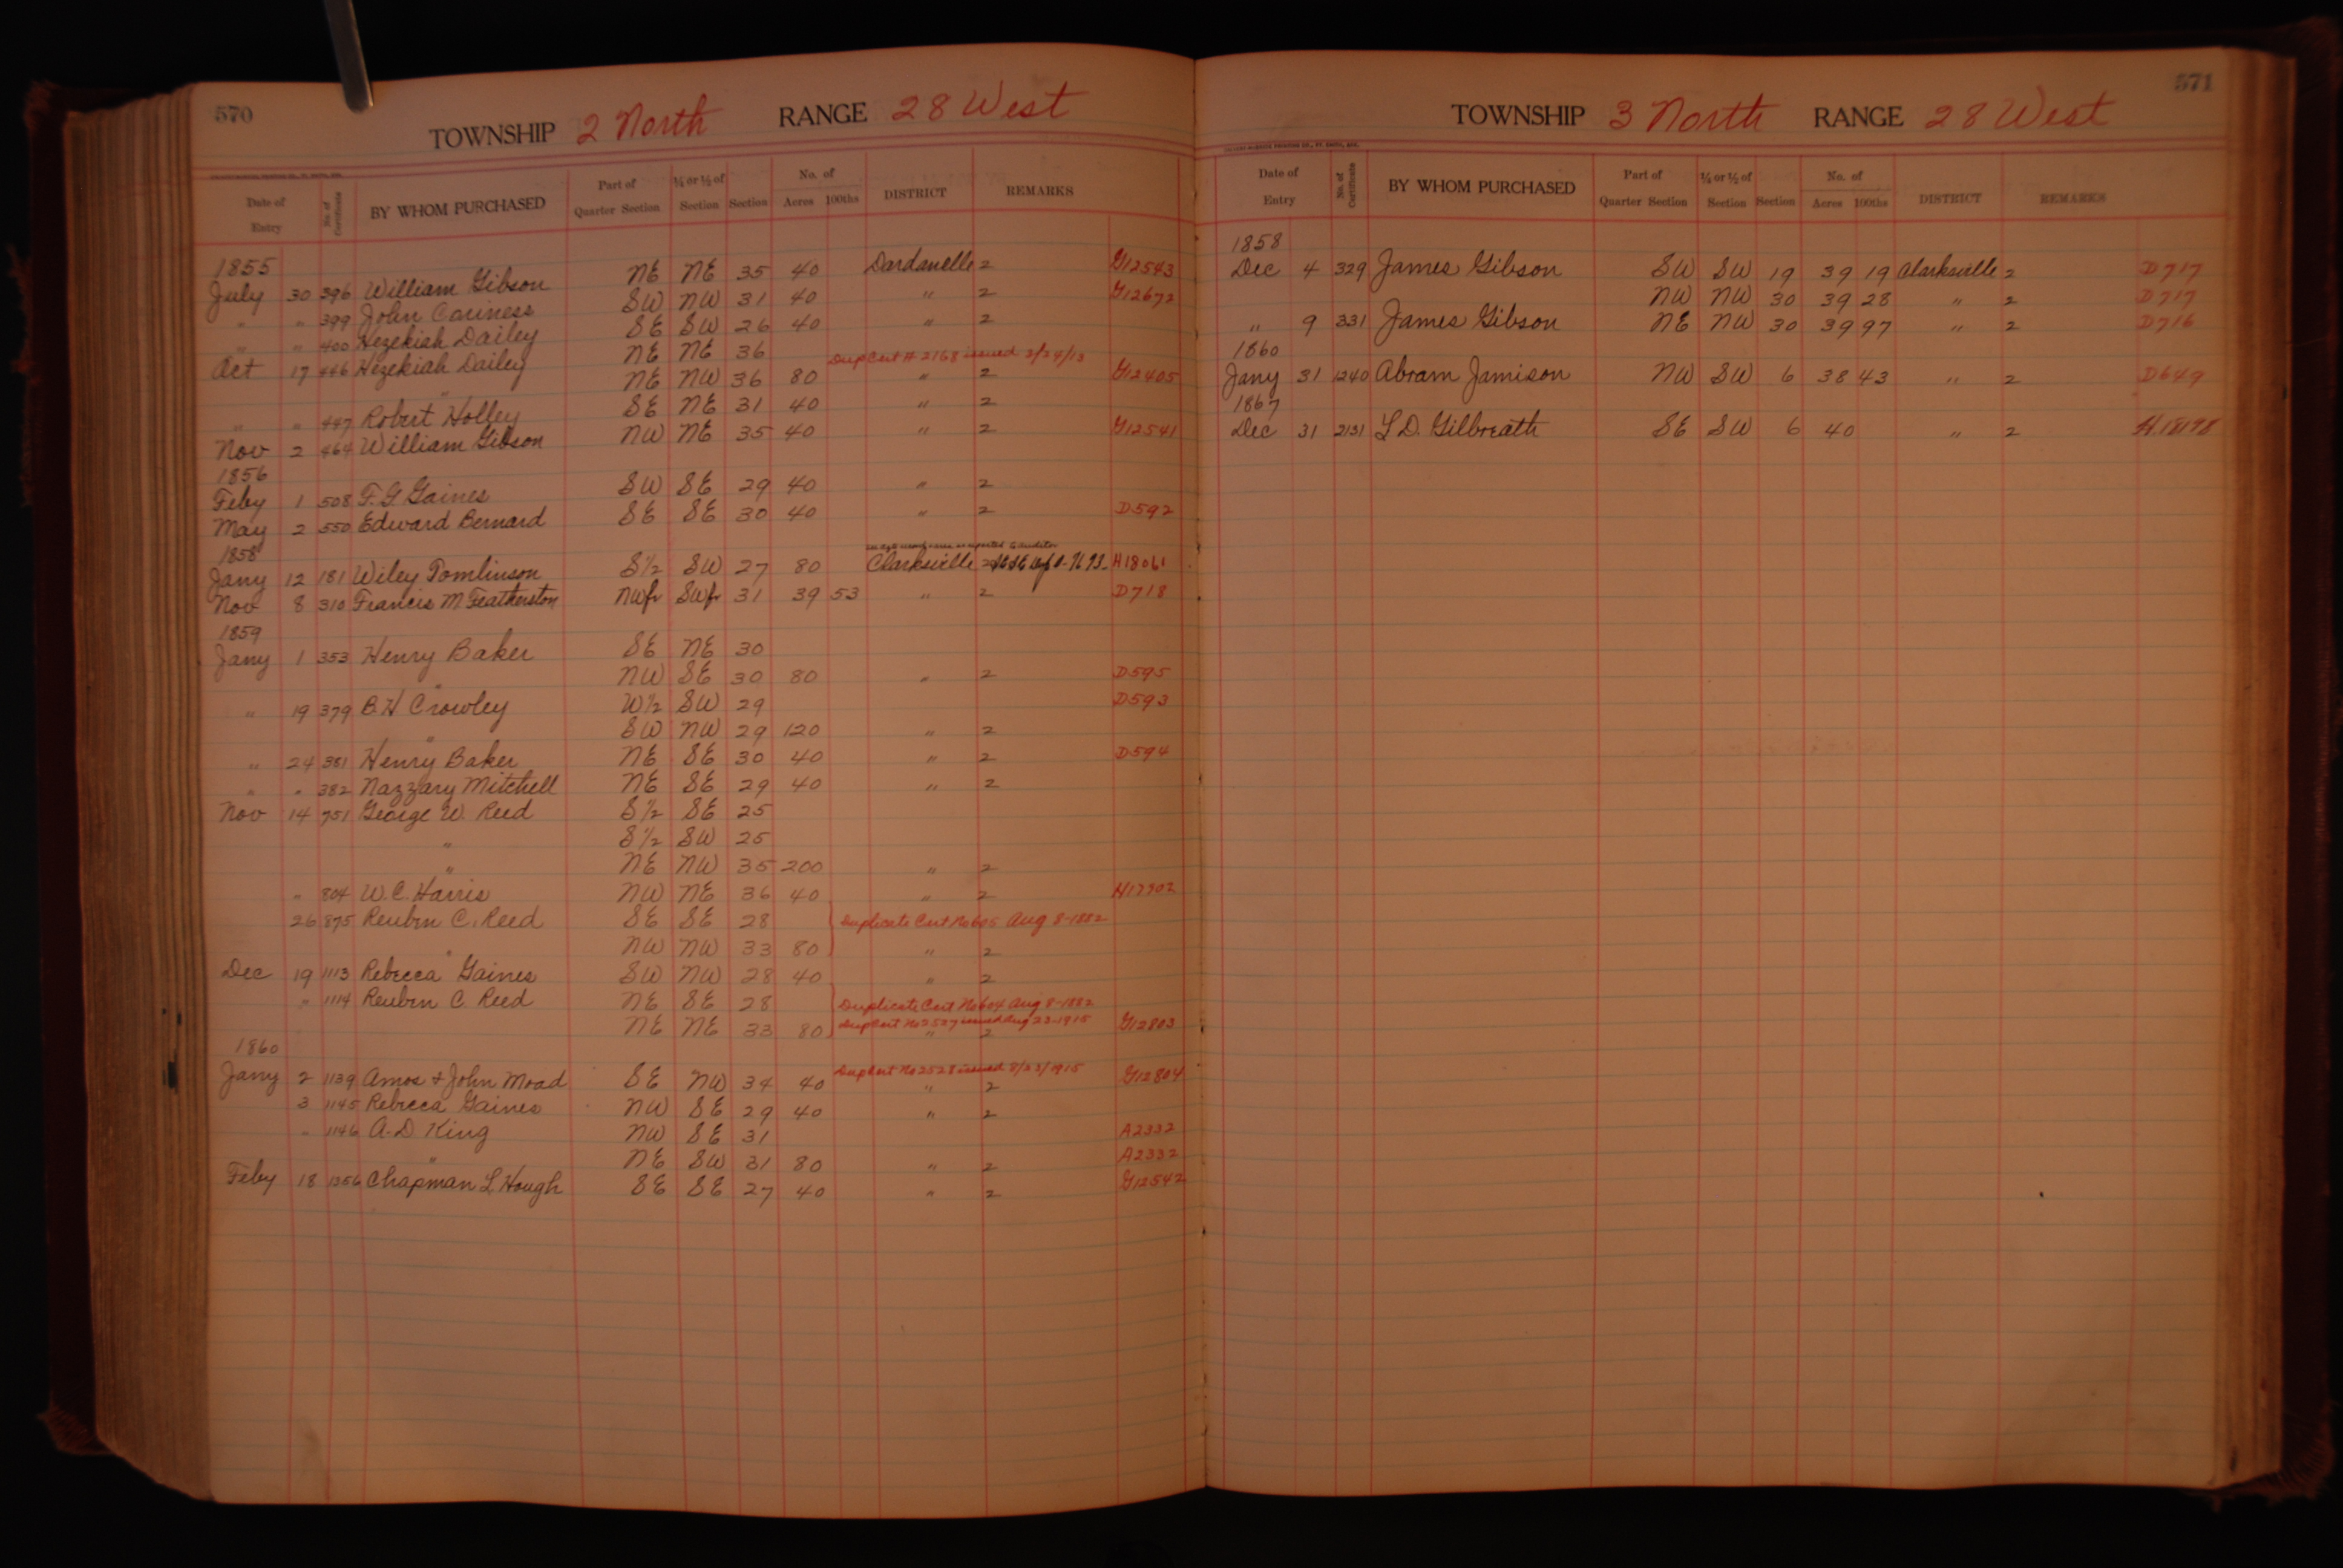 570
TOWNSHIP 2 North RANGE 28 West
Date of Entry No. of Certificate BY WHOM PURCHASED Part of Quarter Section ¼ or ½ of Section Section No. of Acres 100ths DISTRICT REMARKS
1855
July 30 396 William Gibson NE NE 35 40 Dardanelle 2 G12543
" " 399 John Cariness SW NW 31 40 " 2 G12672
" " 400 Hezekiah Dailey SE SW 26 40 " 2
Oct 17 446 Hezekiah Dailey NE NE 36 Dup Cert # 2168 issued 2/24/13
" NE NW 36 80 " 2 G12405
" " 447 Robert Holley SE NE 31 40 " 2
Nov 2 464 William Gibson NW NE 35 40 " 2 G12541
1856
Feby 1 508 F. G Gaines SW SE 29 40 " 2
May 2 550 Edward Bernard SE SE 30 40 " 2 D592
1858
Jany 12 181 Wiley Tomlinson S½ SW 27 80 Clarksville 2 H18061
Nov 8 310 Francis M Featherston NWfr SWfr 31 39 53 " 2 D718
1859
Jany 1 353 Henry Baker SE NE 30
" NW SE 30 80 " 2 D595
" 19 379 B. H Crowley W½ SW 29 D593
" SW NW 29 120 " 2
" 24 381 Henry Baker NE SE 30 40 " 2 D594
" " 382 Nazzary Mitchell NE SE 29 40 " 2
Nov 14 751 George W. Reed S½ SE 25
" S½ SW 25
" NE NW 35 200 " 2
" 804 W. C. Harris NW NE 36 40 " 2 H17902
26 875 Reubin C. Reed SE SE 28 Duplicate Cert No 605 Aug 8-1882
" NW NW 33 80 " 2
Dec 19 1113 Rebecca Gaines SW NW 28 40 " 2
" 1114 Reubin C. Reed NE SE 28 Duplicate Cert No 604 Aug 8-1882
Dup Cert No 2527 issued Aug 23-1915
NE NE 33 80 " 2 G12803
1860
Dup Cert No 2528 issued 8/23/1915
Jany 2 1139 Amos & John Moad SE NW 34 40 " 2 G12804
3 1145 Rebecca Gaines NW SE 29 40 " 2
" 1146 A. D King NW SE 31 A2332
" NE SW 31 80 " 2 A2332
Feby 18 1356 Chapman L Hough SE SE 27 40 " 2 G12542
571
TOWNSHIP 3 North RANGE 28 West
Date of Entry No. of Certificate BY WHOM PURCHASED Part of Quarter Section ¼ or ½ of Section Section No. of Acres 100ths DISTRICT REMARKS
1858
Dec 4 329 James Gibson SW SW 19 39 19 Clarksville 2 D717
NW NW 30 39 28 " 2 D717
" 9 331 James Gibson NE NW 30 39 97 " 2 D716
1860
Jany 31 1240 Abram Jamison NW SW 6 38 43 " 2 D649
1867
Dec 31 2131 L D. Gilbreath SE SW 6 40 " 2 H.18198